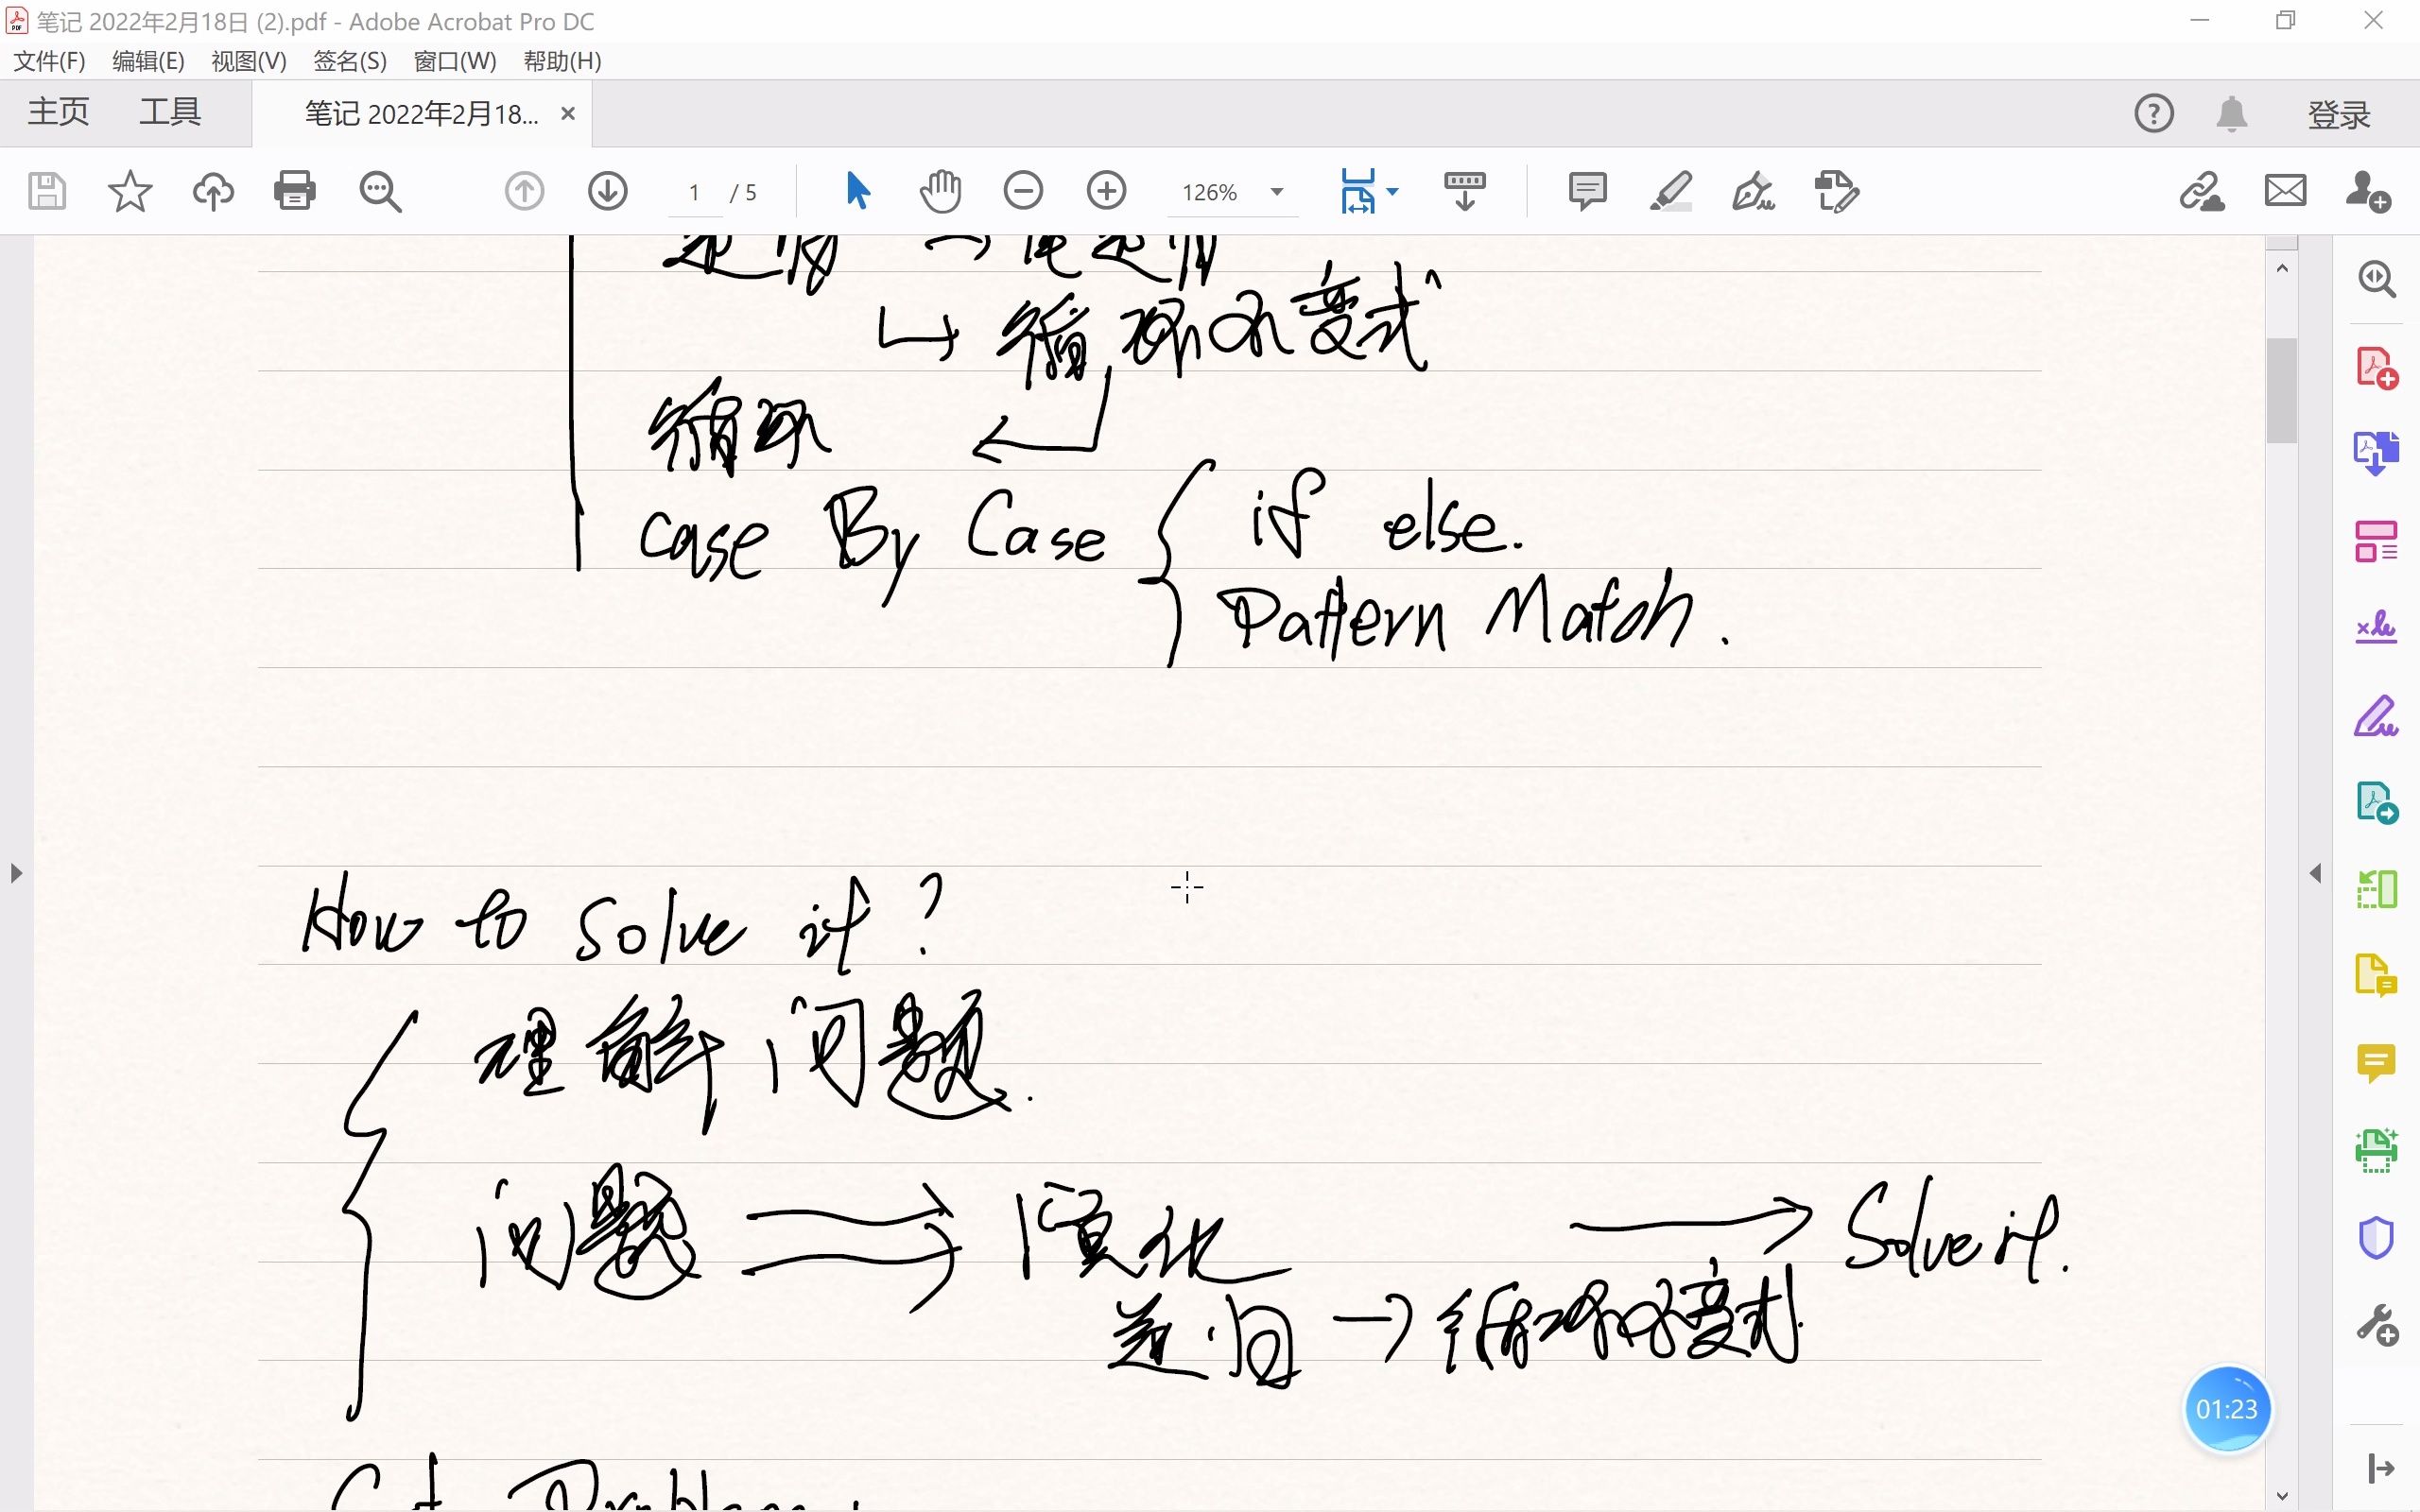 笔记 2022年2月18日 (2).pdf - Adobe Acrobat Pro DC
文件(F) 编辑(E) 视图(V) 签名(S) 窗口(W) 帮助(H)
主页 工具 笔记 2022年2月18... × 登录
1 / 5 126%
↳ 循环不变式
循环
Case By Case { if else.
Pattern Match.
How to solve it?
理解问题.
问题 演化 → Solve it.
递归 → 循环不变式.
01:23